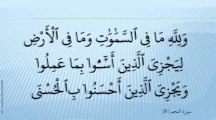 وَلِلَّهِ مَا فِى ٱلسَّمَٰوَٰتِ وَمَا فِى ٱلْأَرْضِ
لِيَجْزِىَ ٱلَّذِينَ أَسَٰٓـُٔوا۟ بِمَا عَمِلُوا۟
وَيَجْزِىَ ٱلَّذِينَ أَحْسَنُوا۟ بِٱلْحُسْنَى
سورة النجم